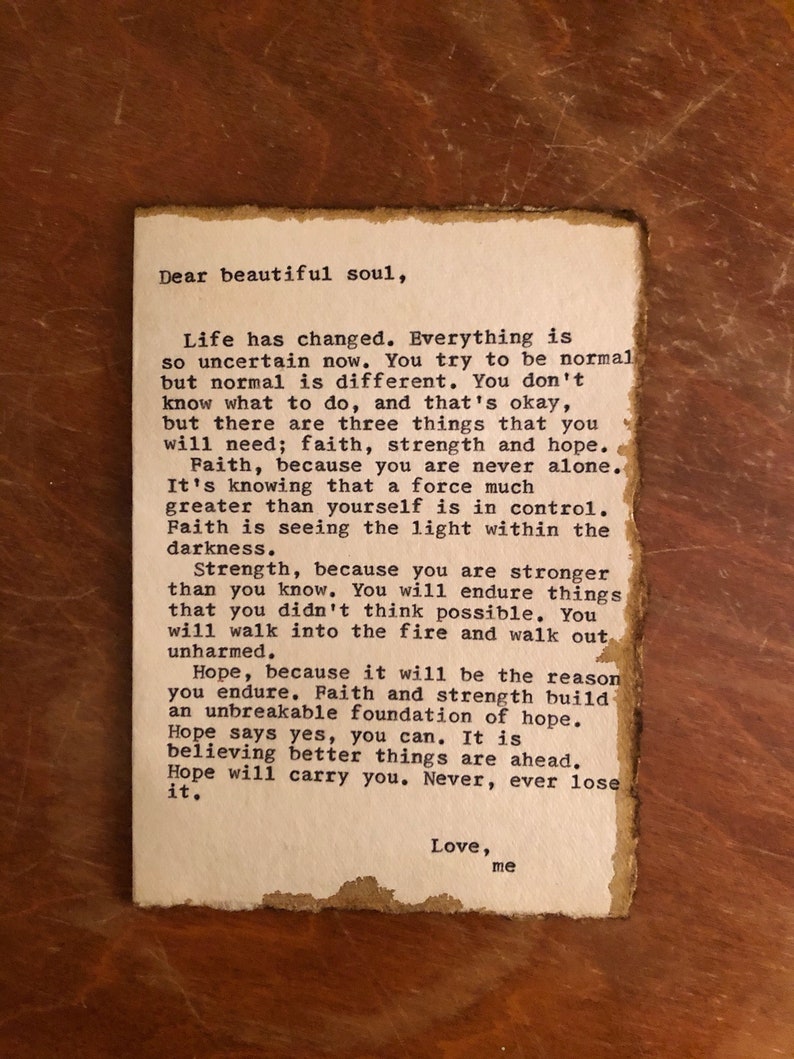 Dear beautiful soul,
Life has changed. Everything is
so uncertain now. You try to be normal
but normal is different. You don't
know what to do, and that's okay,
but there are three things that you
will need; faith, strength and hope.
Faith, because you are never alone.
It's knowing that a force much
greater than yourself is in control.
Faith is seeing the light within the
darkness.
Strength, because you are stronger
than you know. You will endure things
that you didn't think possible. You
will walk into the fire and walk out
unharmed.
Hope, because it will be the reason
you endure. Faith and strength build
an unbreakable foundation of hope.
Hope says yes, you can. It is
believing better things are ahead.
Hope will carry you. Never, ever lose
it.
Love,
me